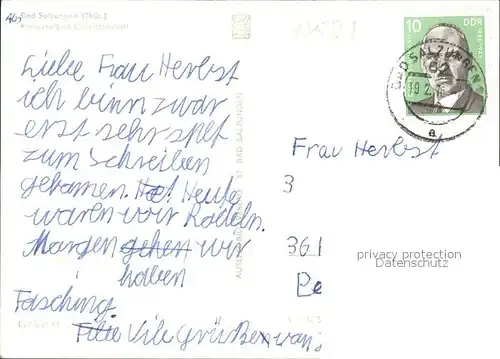 Bad Salzungen (Thür.)
Liebe Frau Herbst
ich binn zwar
erst sehr spet
zum Schreiben
gekamen. Hat Heute
waren wir Rodeln.
Margen gehen wir
haben
Fasching.
Vile Grüße van
10
DDR
BAD SALZUNGEN
62
19.2.
a
Frau Herbst
3
361
privacy protection
Datenschutz